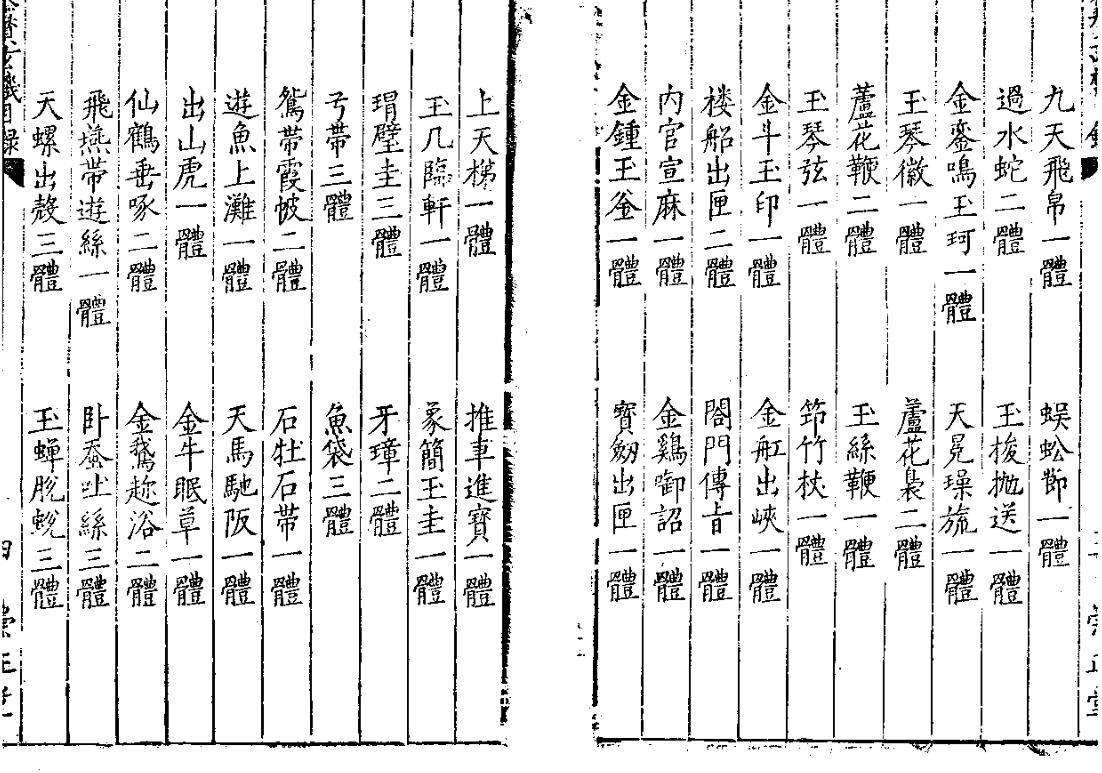 九天飛帛一體 蜈蚣節一體
過水蛇二體 玉梭抛送一體
金鑾鳴玉珂一體 天冕璪旒一體
玉琴徽一體 蘆花裊二體
蘆花鞭二體 玉絲鞭一體
玉琴弦一體 笻竹杖一體
金斗玉印一體 金缸出峽一體
楼船出匣二體 閤門傳旨一體
内官宣麻一體 金鷄啣詔一體
金鍾玉釜一體 寳劒出匣一體
上天梯一體 推車進寳一體
玉几臨軒一體 象簡玉圭一體
瑁璧圭三體 牙璋二體
弓帶三體 魚袋三體
鴛帶霞帔二體 石牡石帶一體
遊魚上灘一體 天馬馳阪一體
出山虎一體 金牛眠草一體
仙鶴垂啄二體 金鵞趂浴二體
飛燕帶遊絲一體 卧蚕吐絲三體
天螺出殼三體 玉蟬脫蛻三體
玄機目録
四 崇正堂